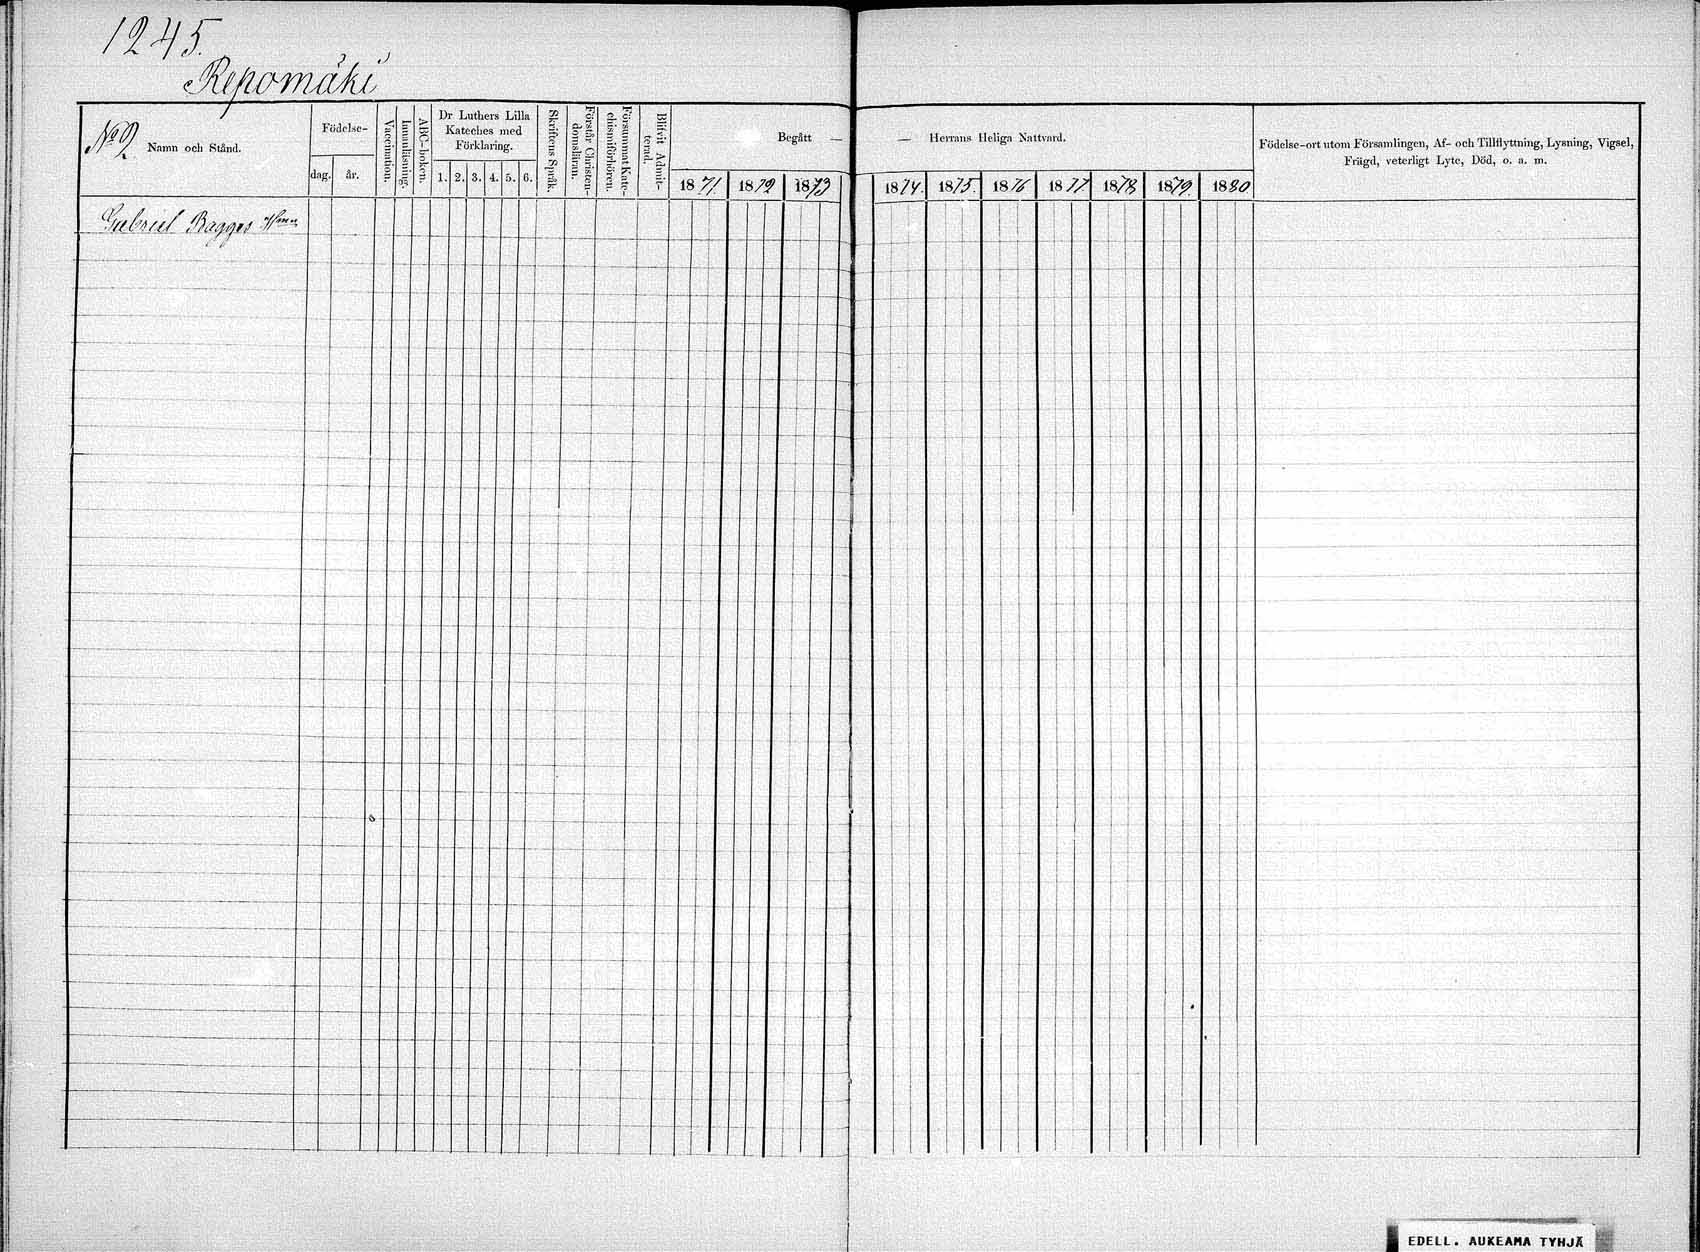 1245.
Repomäki
No 2
Namn och Stånd.
Födelse-
dag. år.
Vaccination.
Innanläsning.
ABC-boken.
Dr Luthers Lilla
Kateches med
Förklaring.
1. 2. 3. 4. 5. 6.
Skriftens Språk.
Förstår Christen-
domsläran.
Försummat Kate-
chismiförhören.
Blifvit Admit-
terad.
Begått — — Herrans Heliga Nattvard.
1871. 1872 1873 1874. 1875. 1876 1877 1878 1879. 1880
Födelse-ort utom Församlingen, Af- och Tillflyttning, Lysning, Vigsel,
Frägd, veterligt Lyte, Död, o. a. m.
Gabriel Bagges
EDELL. AUKEAMA TYHJÄ